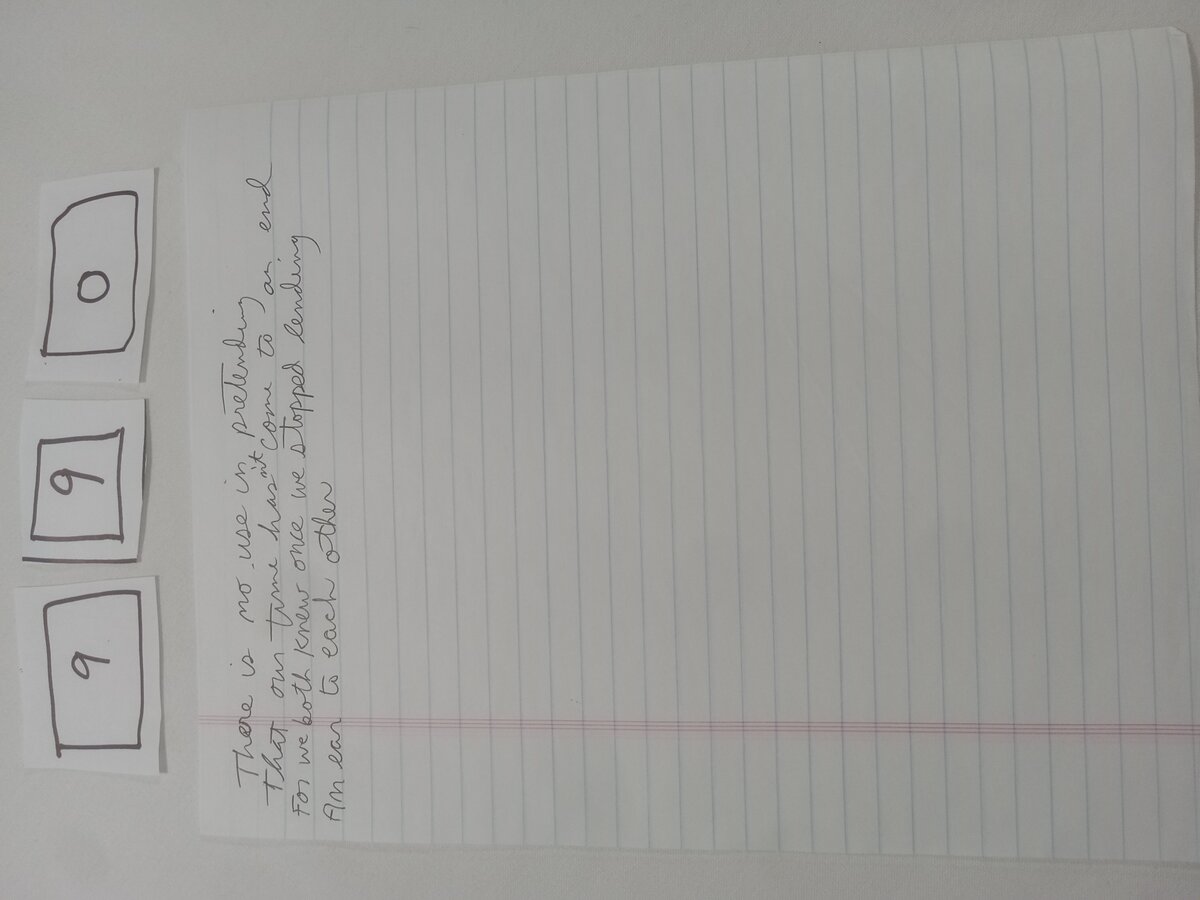 9 9 0
There is no use in pretending
that our time hasn't come to an end
For we both knew once we stopped lending
An ear to each other